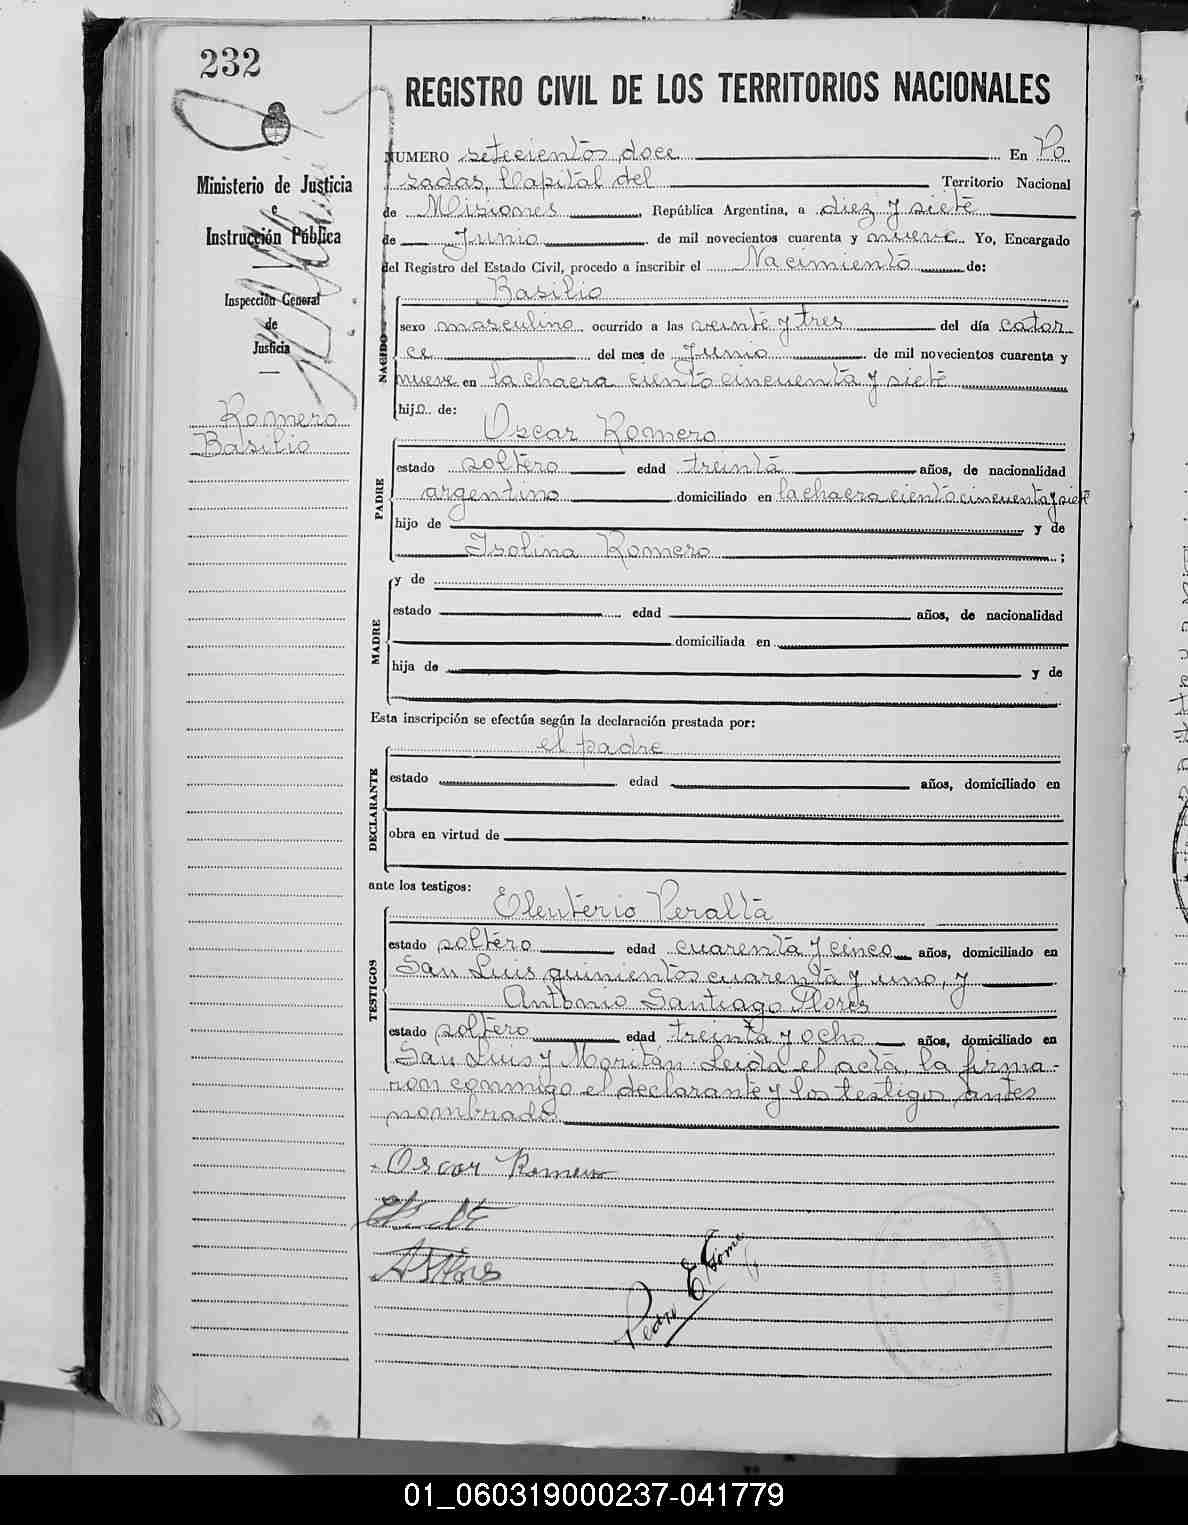 232
REGISTRO CIVIL DE LOS TERRITORIOS NACIONALES
Ministerio de Justicia
e
Instrucción Pública
Inspección General
de
Justicia
Romero
Basilio
NUMERO setecientos doce En Po
sadas, Capital del Territorio Nacional
de Misiones, República Argentina, a diez y siete
de Junio de mil novecientos cuarenta y nueve Yo, Encargado
del Registro del Estado Civil, procedo a inscribir el Nacimiento de:
NACIDO
Basilio
sexo masculino ocurrido a las veinte y tres del día cator
ce del mes de Junio de mil novecientos cuarenta y
nueve en la chacra ciento cincuenta y siete
hijo de:
PADRE
Oscar Romero
estado soltero edad treinta años, de nacionalidad
argentino domiciliado en la chacra ciento cincuenta y siete
hijo de y de
Isolina Romero ;
MADRE
y de
estado edad años, de nacionalidad
domiciliada en
hija de y de
Esta inscripción se efectúa según la declaración prestada por:
DECLARANTE
el padre
estado edad años, domiciliado en
obra en virtud de
ante los testigos:
TESTIGOS
Eleuterio Peralta
estado soltero edad cuarenta y cinco años, domiciliado en
San Luis quinientos cuarenta y uno, y
Antonio Santiago Flores
estado soltero edad treinta y ocho años, domiciliado en
San Luis y Moritan. Leida el acta, la firma-
ron conmigo el declarante y los testigos antes
nombrado
Oscar Romero
A S Flores
Pedro E
01_060319000237-041779